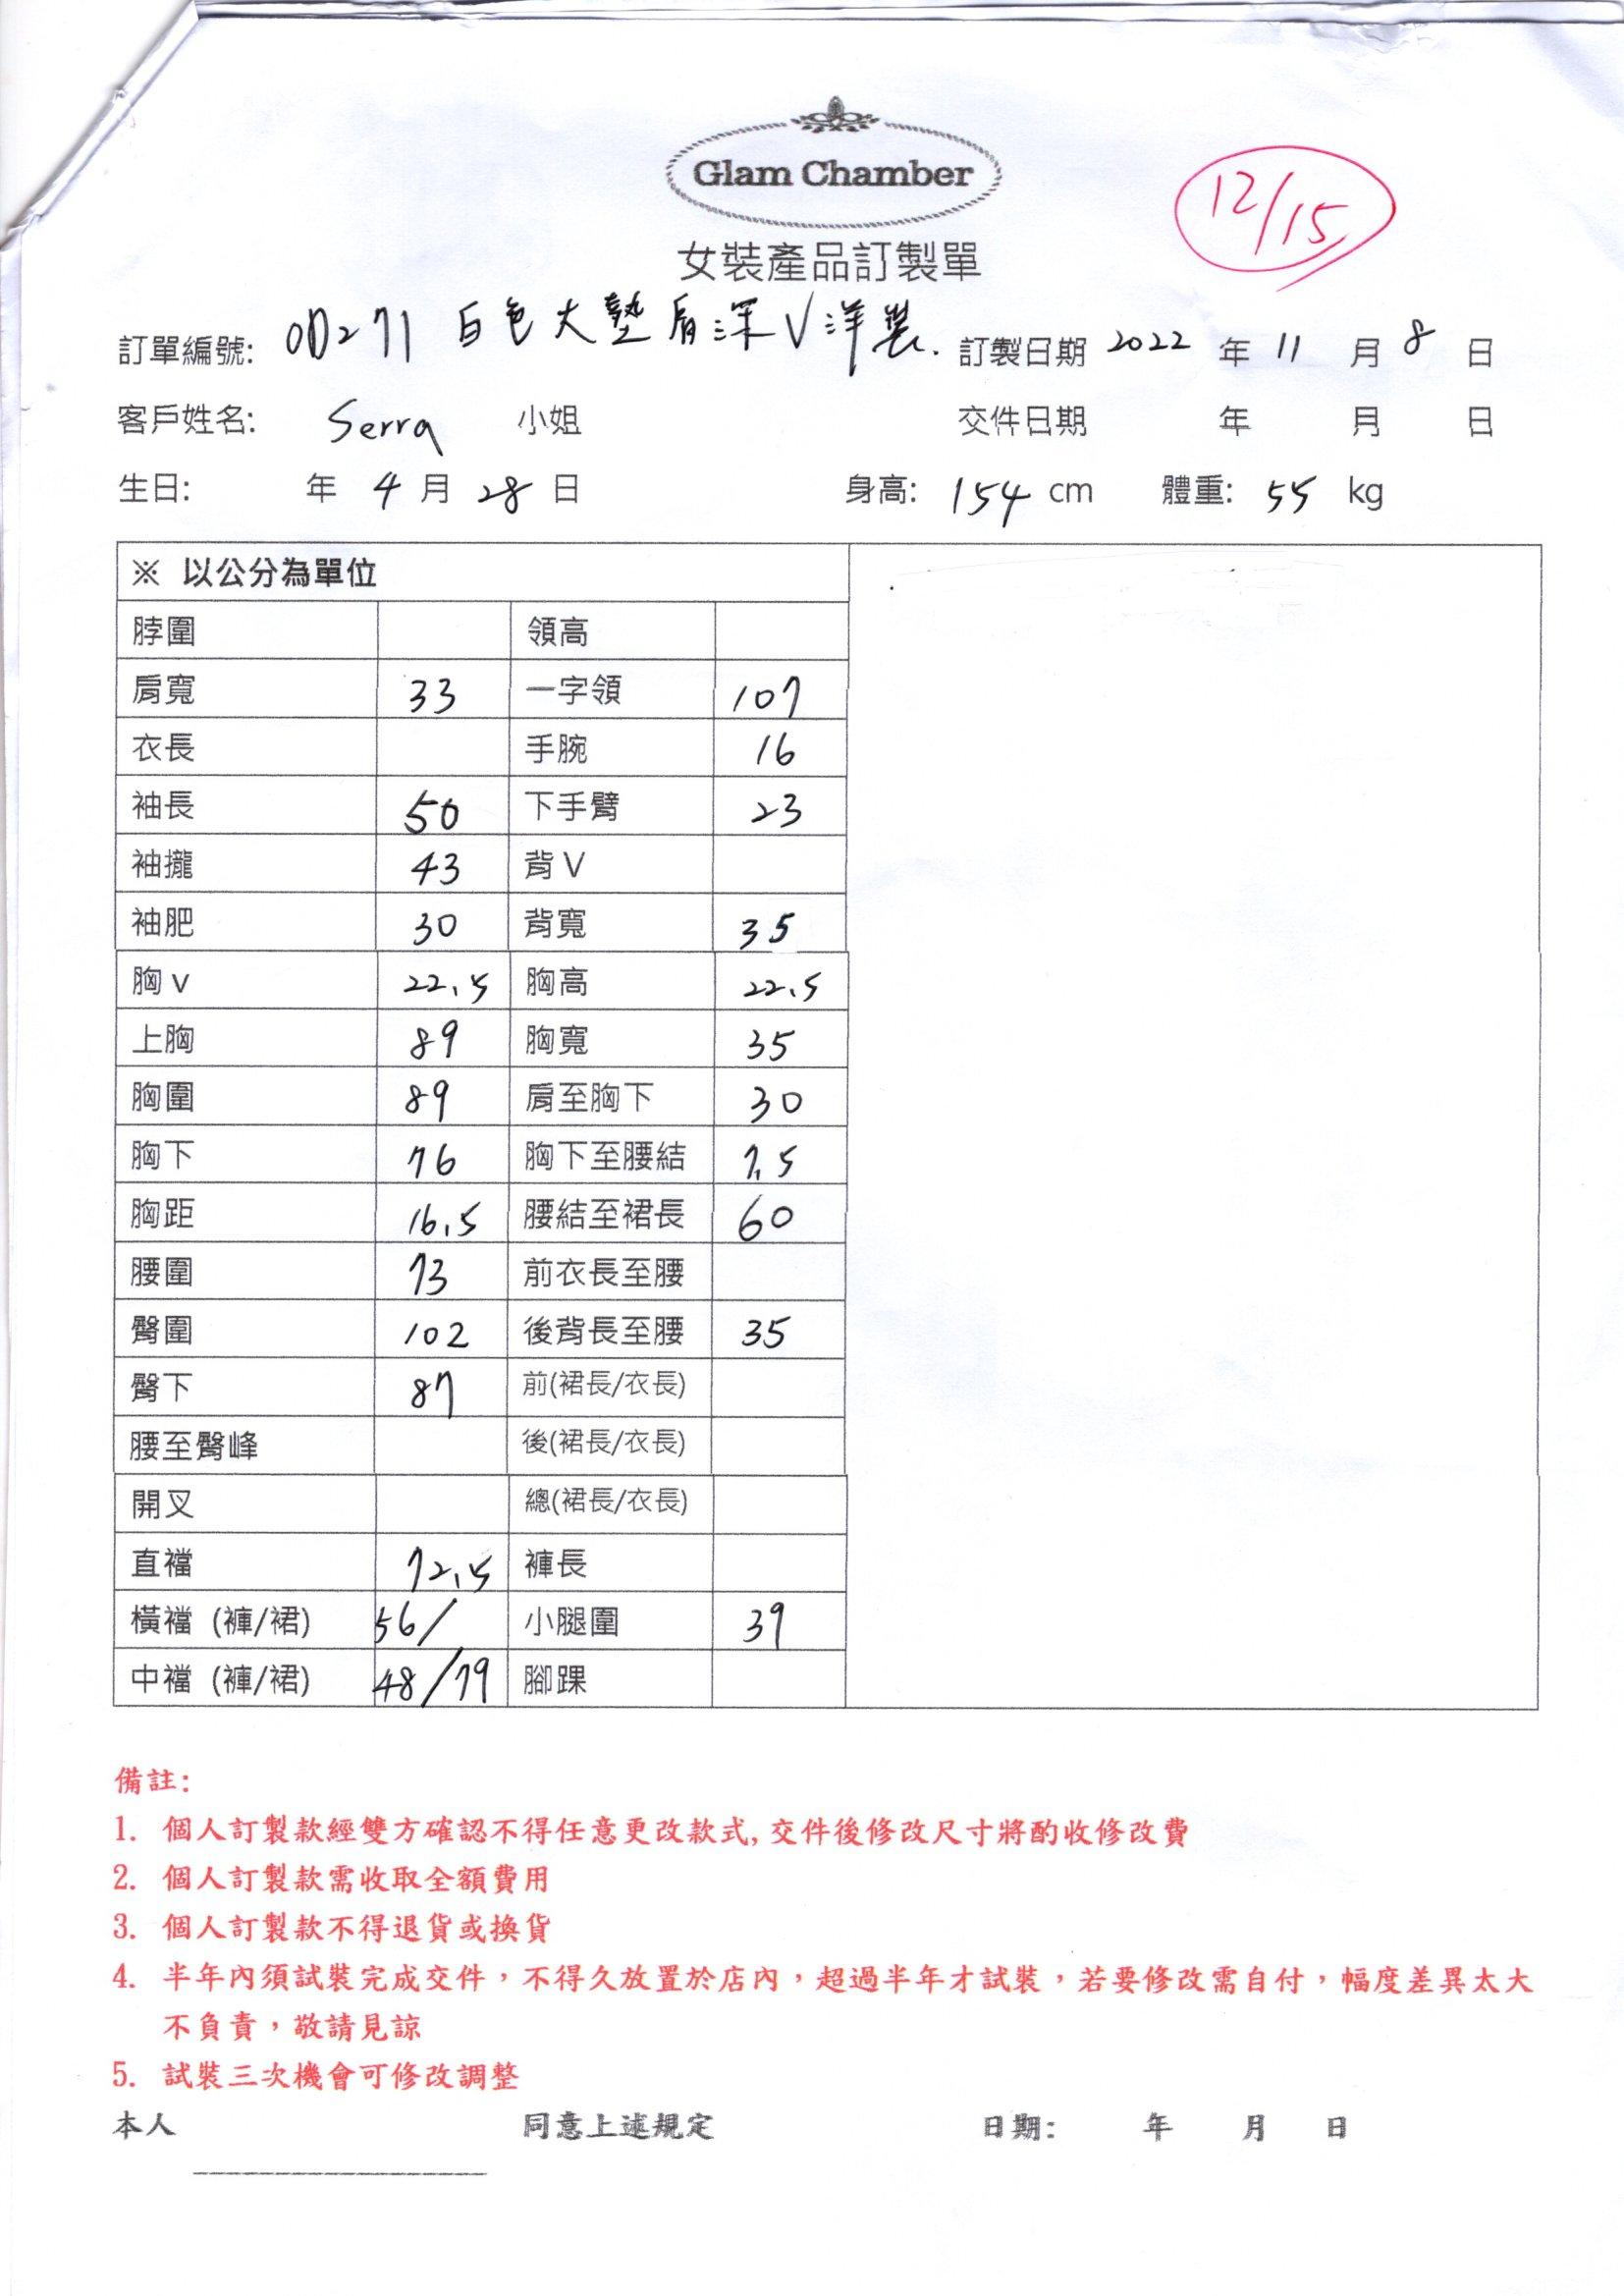 Glam Chamber
12/15
女裝產品訂製單
訂單編號: OD271 白色大墊肩深V洋裝. 訂製日期 2022 年 11 月 8 日
客戶姓名: Serra 小姐 交件日期 年 月 日
生日: 年 4 月 28 日 身高: 154 cm 體重: 55 kg
※ 以公分為單位
脖圍 領高
肩寬 33 一字領 107
衣長 手腕 16
袖長 50 下手臂 23
袖攏 43 背V
袖肥 30 背寬 35
胸v 22.5 胸高 22.5
上胸 89 胸寬 35
胸圍 89 肩至胸下 30
胸下 76 胸下至腰結 7.5
胸距 16.5 腰結至裙長 60
腰圍 73 前衣長至腰
臀圍 102 後背長至腰 35
臀下 87 前(裙長/衣長)
腰至臀峰 後(裙長/衣長)
開叉 總(裙長/衣長)
直襠 72.5 褲長
橫襠 (褲/裙) 56/ 小腿圍 39
中襠 (褲/裙) 48/79 腳踝
備註:
1. 個人訂製款經雙方確認不得任意更改款式,交件後修改尺寸將酌收修改費
2. 個人訂製款需收取全額費用
3. 個人訂製款不得退貨或換貨
4. 半年內須試裝完成交件,不得久放置於店內,超過半年才試裝,若要修改需自付,幅度差異太大
不負責,敬請見諒
5. 試裝三次機會可修改調整
本人 同意上述規定 日期: 年 月 日